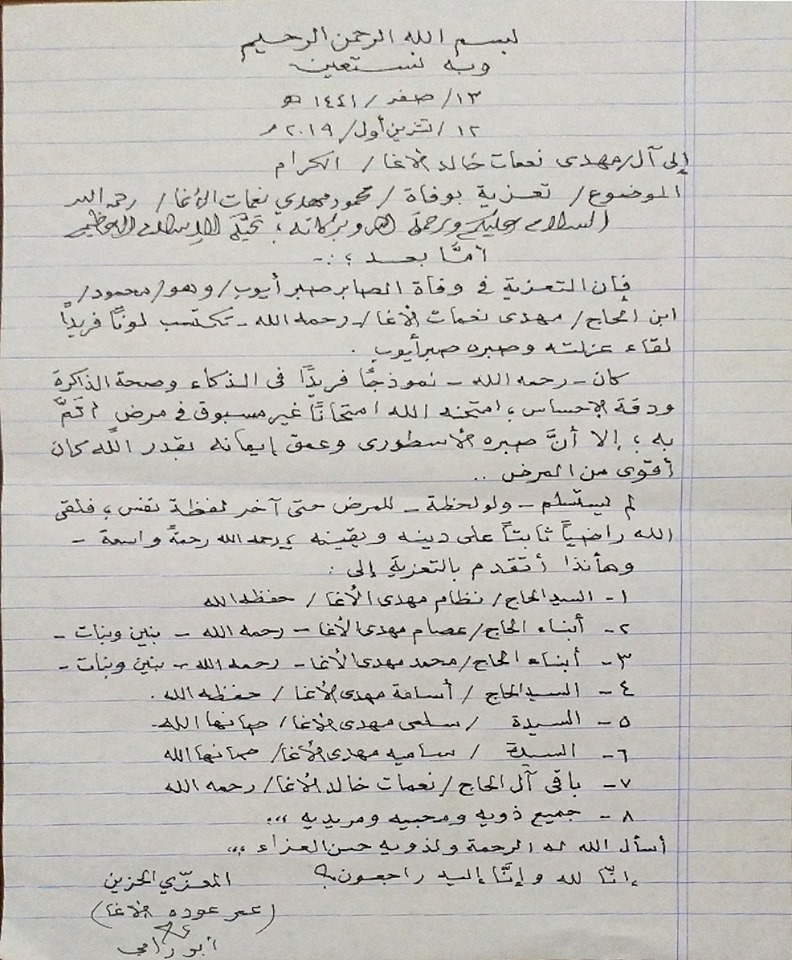 بسم الله الرحمن الرحيم
وبه نستعين
١٣/ صفر / ١٤٤١ هـ
١٢ / تشرين أول / ٢٠١٩ م
إلى آل/ مهدى نعمات خالد الأغا / الكرام
الموضوع / تعزية بوفاة / محمود مهدي نعمات الأغا / رحمه الله
السلام عليكم ورحمة الله وبركاته ؛ تحيَّة الإسلام العظيم
أمَّا بعد ؛ :-
فإن التعزية فى وفاة الصابر صبر أيوب / وهو / محمود /
ابن الحاج / مهدى نعمات الأغا / - رحمه الله - تكتسب لونًا فريدًا
لقاء عزلته وصبره صبر أيوب .
كان - رحمه الله - نموذجًا فريدًا فى الذكاء وصحة الذاكرة
ودقة الإحساس ؛ امتحنه الله امتحانًا غير مسبوق فى مرض ألمَّ
به ؛ إلا أنَّ صبره الأسطورى وعمق إيمانه بقدر الله كان
أقوى من المرض ..
لم يستسلم - ولو لحظة - للمرض حتى آخر لحظة نفس ؛ فلقى
الله راضياً ثابتاً على دينه ويقينه ؛ يرحمه الله رحمةً واسعة -
وهأنذا أتقدم بالتعزية إلى :
١- السيد الحاج / نظام مهدى الأغا / حفظه الله
٢- أبناء الحاج / عصام مهدى الأغا - رحمه الله - بنين وبنات -
٣- أبناء الحاج / محمد مهدى الأغا - رحمه الله - بنين وبنات -
٤- السيد الحاج / أسامة مهدى الأغا / حفظه الله .
٥- السيدة / سلمى مهدى الأغا / صانها الله -
٦- السيدة / ساميه مهدى الأغا / صانها الله
٧- باقى آل الحاج / نعمات خالد الأغا / رحمه الله
٨- جميع ذويه ومحبيه ومريديه ،،،
أسأل الله له الرحمة ولذويه حسن العزاء ،،،
إنَّا لله وإنَّا إليه راجعون
المعزّي الحزين
(عمر عوده الأغا)
أبو رامي